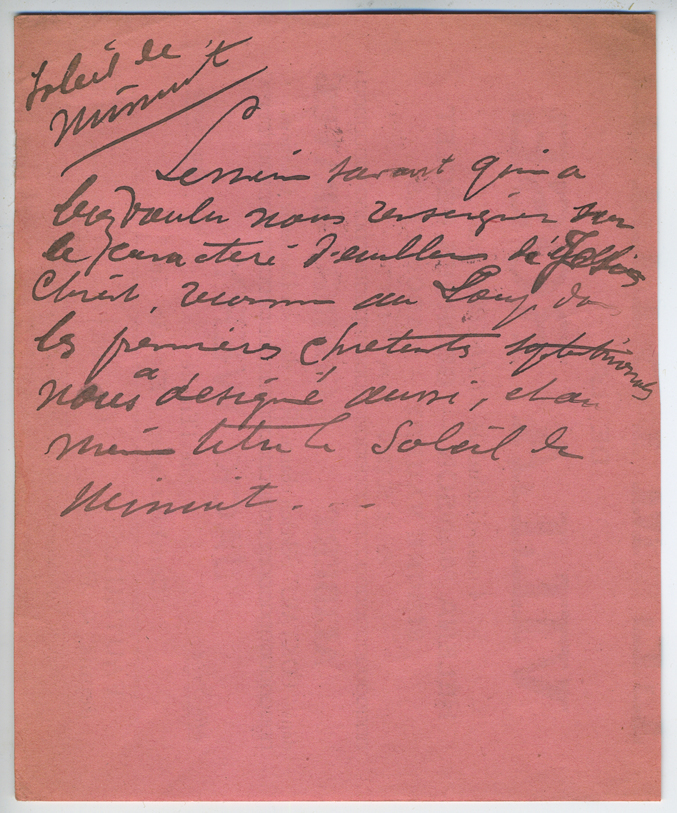 Soleil de
Minuit
Le même savant qui a
bien voulu nous renseigner sur
le caractère d'emblème de Jésus
Christ, reconnu au Loup, dans
les premières chrétientés septentrionales
nous a désigné aussi, et au
même titre le Soleil de
Minuit. . .